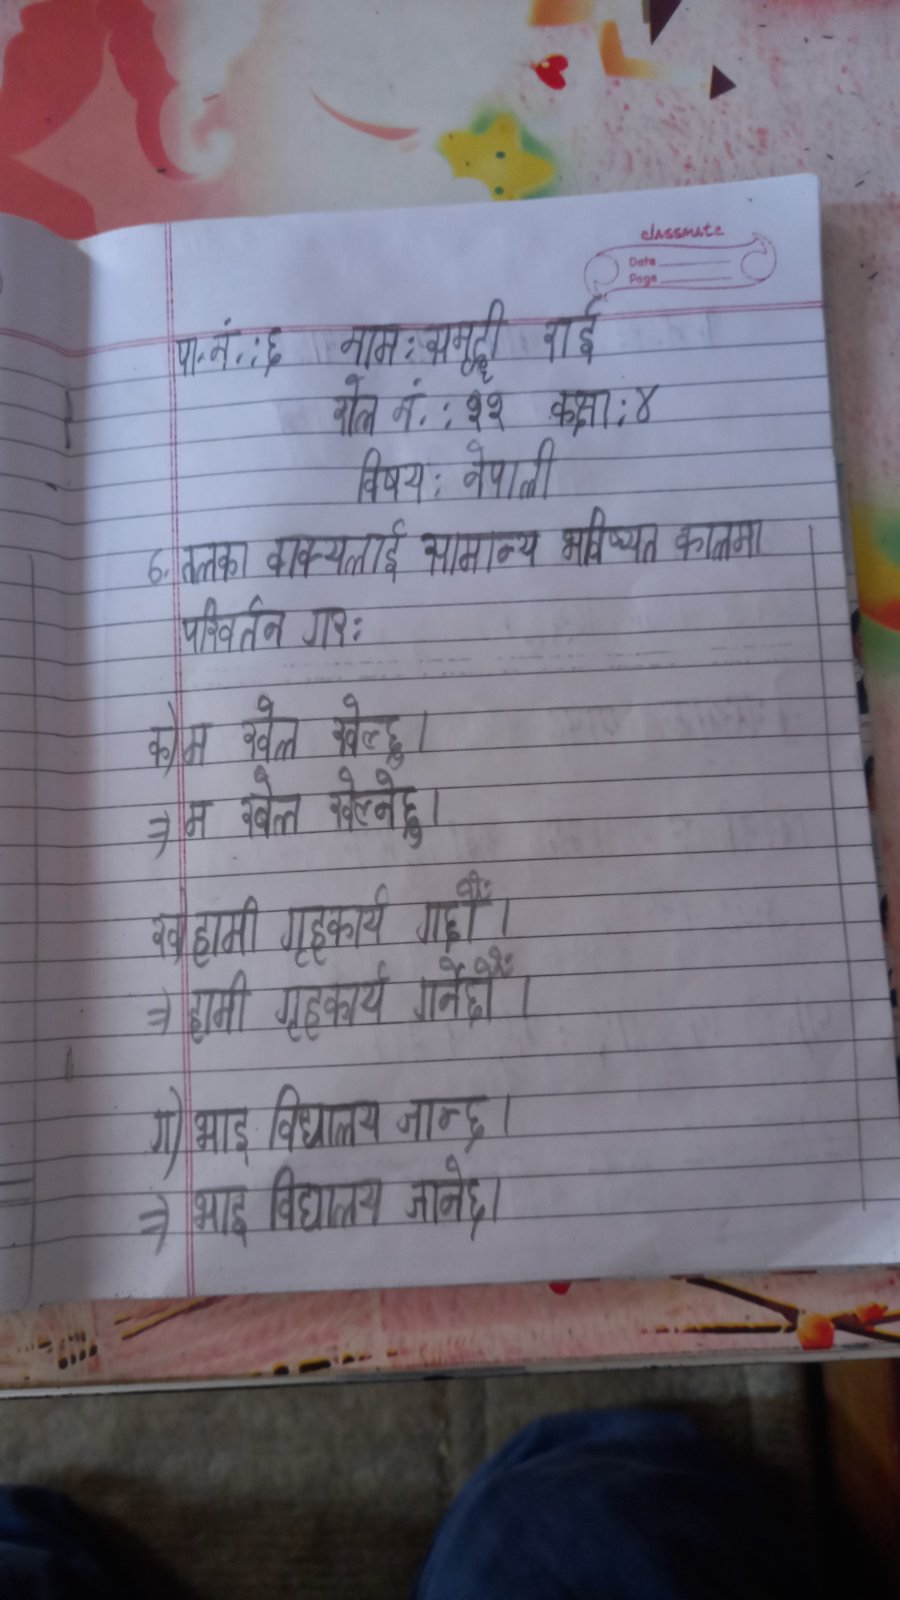 classmate
Date
Page
पा.नं.:६ नाम: समृद्दी राई
रोल नं.: २२ कक्षा: ४
विषय: नेपाली
6. तलका वाक्यलाई सामान्य भविष्यत कालमा
परिवर्तन गर:
क) म खेल खेल्छु।
⇒ म खेल खेल्नेछु।
ख) हामी गृहकार्य गर्छौं।
⇒ हामी गृहकार्य गर्नेछौं।
ग) भाइ विद्यालय जान्छ।
⇒ भाइ विद्यालय जानेछ।